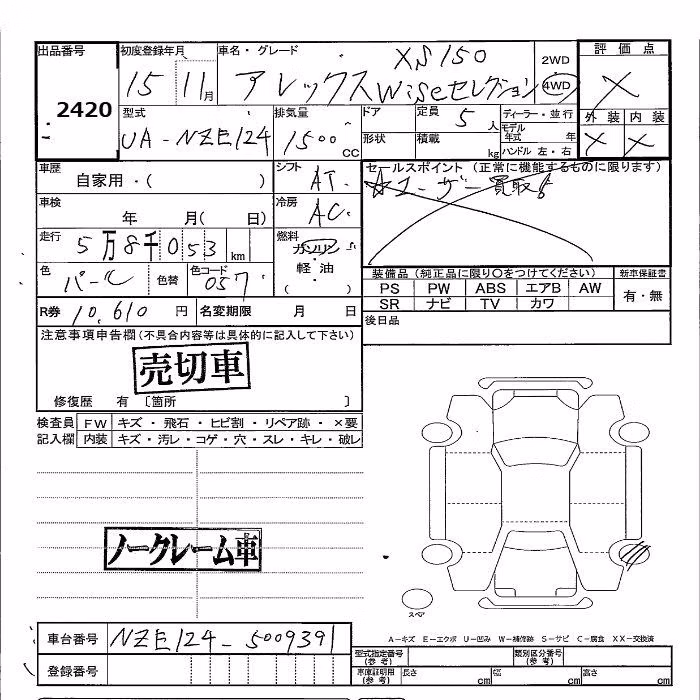 出品番号 初度登録年月 車名・グレード XS150 2WD 評価点
2420 15 11月 アレックスWiseセレクション 4WD X
型式 排気量 ドア 定員 5人 ディーラー・並行 外装 内装
UA-NZE124 1500CC 形状 積載 kg モデル年式 年 X X
ハンドル 左・右
車歴 自家用・( ) シフト AT セールスポイント (正常に機能するものに限ります)
車検 年 月( 日) 冷房 AC ☆ユーザー買取
走行 5万8千053km 燃料 ガソリン
軽・油
( ・ )
色 パール 色替 色コード 057 装備品(純正品に限り〇をつけてください) 新車保証書
PS PW ABS エアB AW 有・無
SR ナビ TV カワ
R券 10,610円 名変期限 月 日 後日品
注意事項申告欄(不具合内容等は具体的に記入して下さい)
売切車
修復歴 有〔箇所 〕
検査員 FW キズ・飛石・ヒビ割・リペア跡・×要
記入欄 内装 キズ・汚レ・コゲ・穴・スレ・キレ・破レ
ノークレーム車
スペア
A-キズ E-エクボ U-凹み W-補修跡 S-サビ C-腐食 XX-交換済
車台番号 NZE124-5009391 型式指定番号(参考) 類別区分番号(参考)
登録番号 車庫証明用(参考) 長さ cm 幅 cm 高さ cm